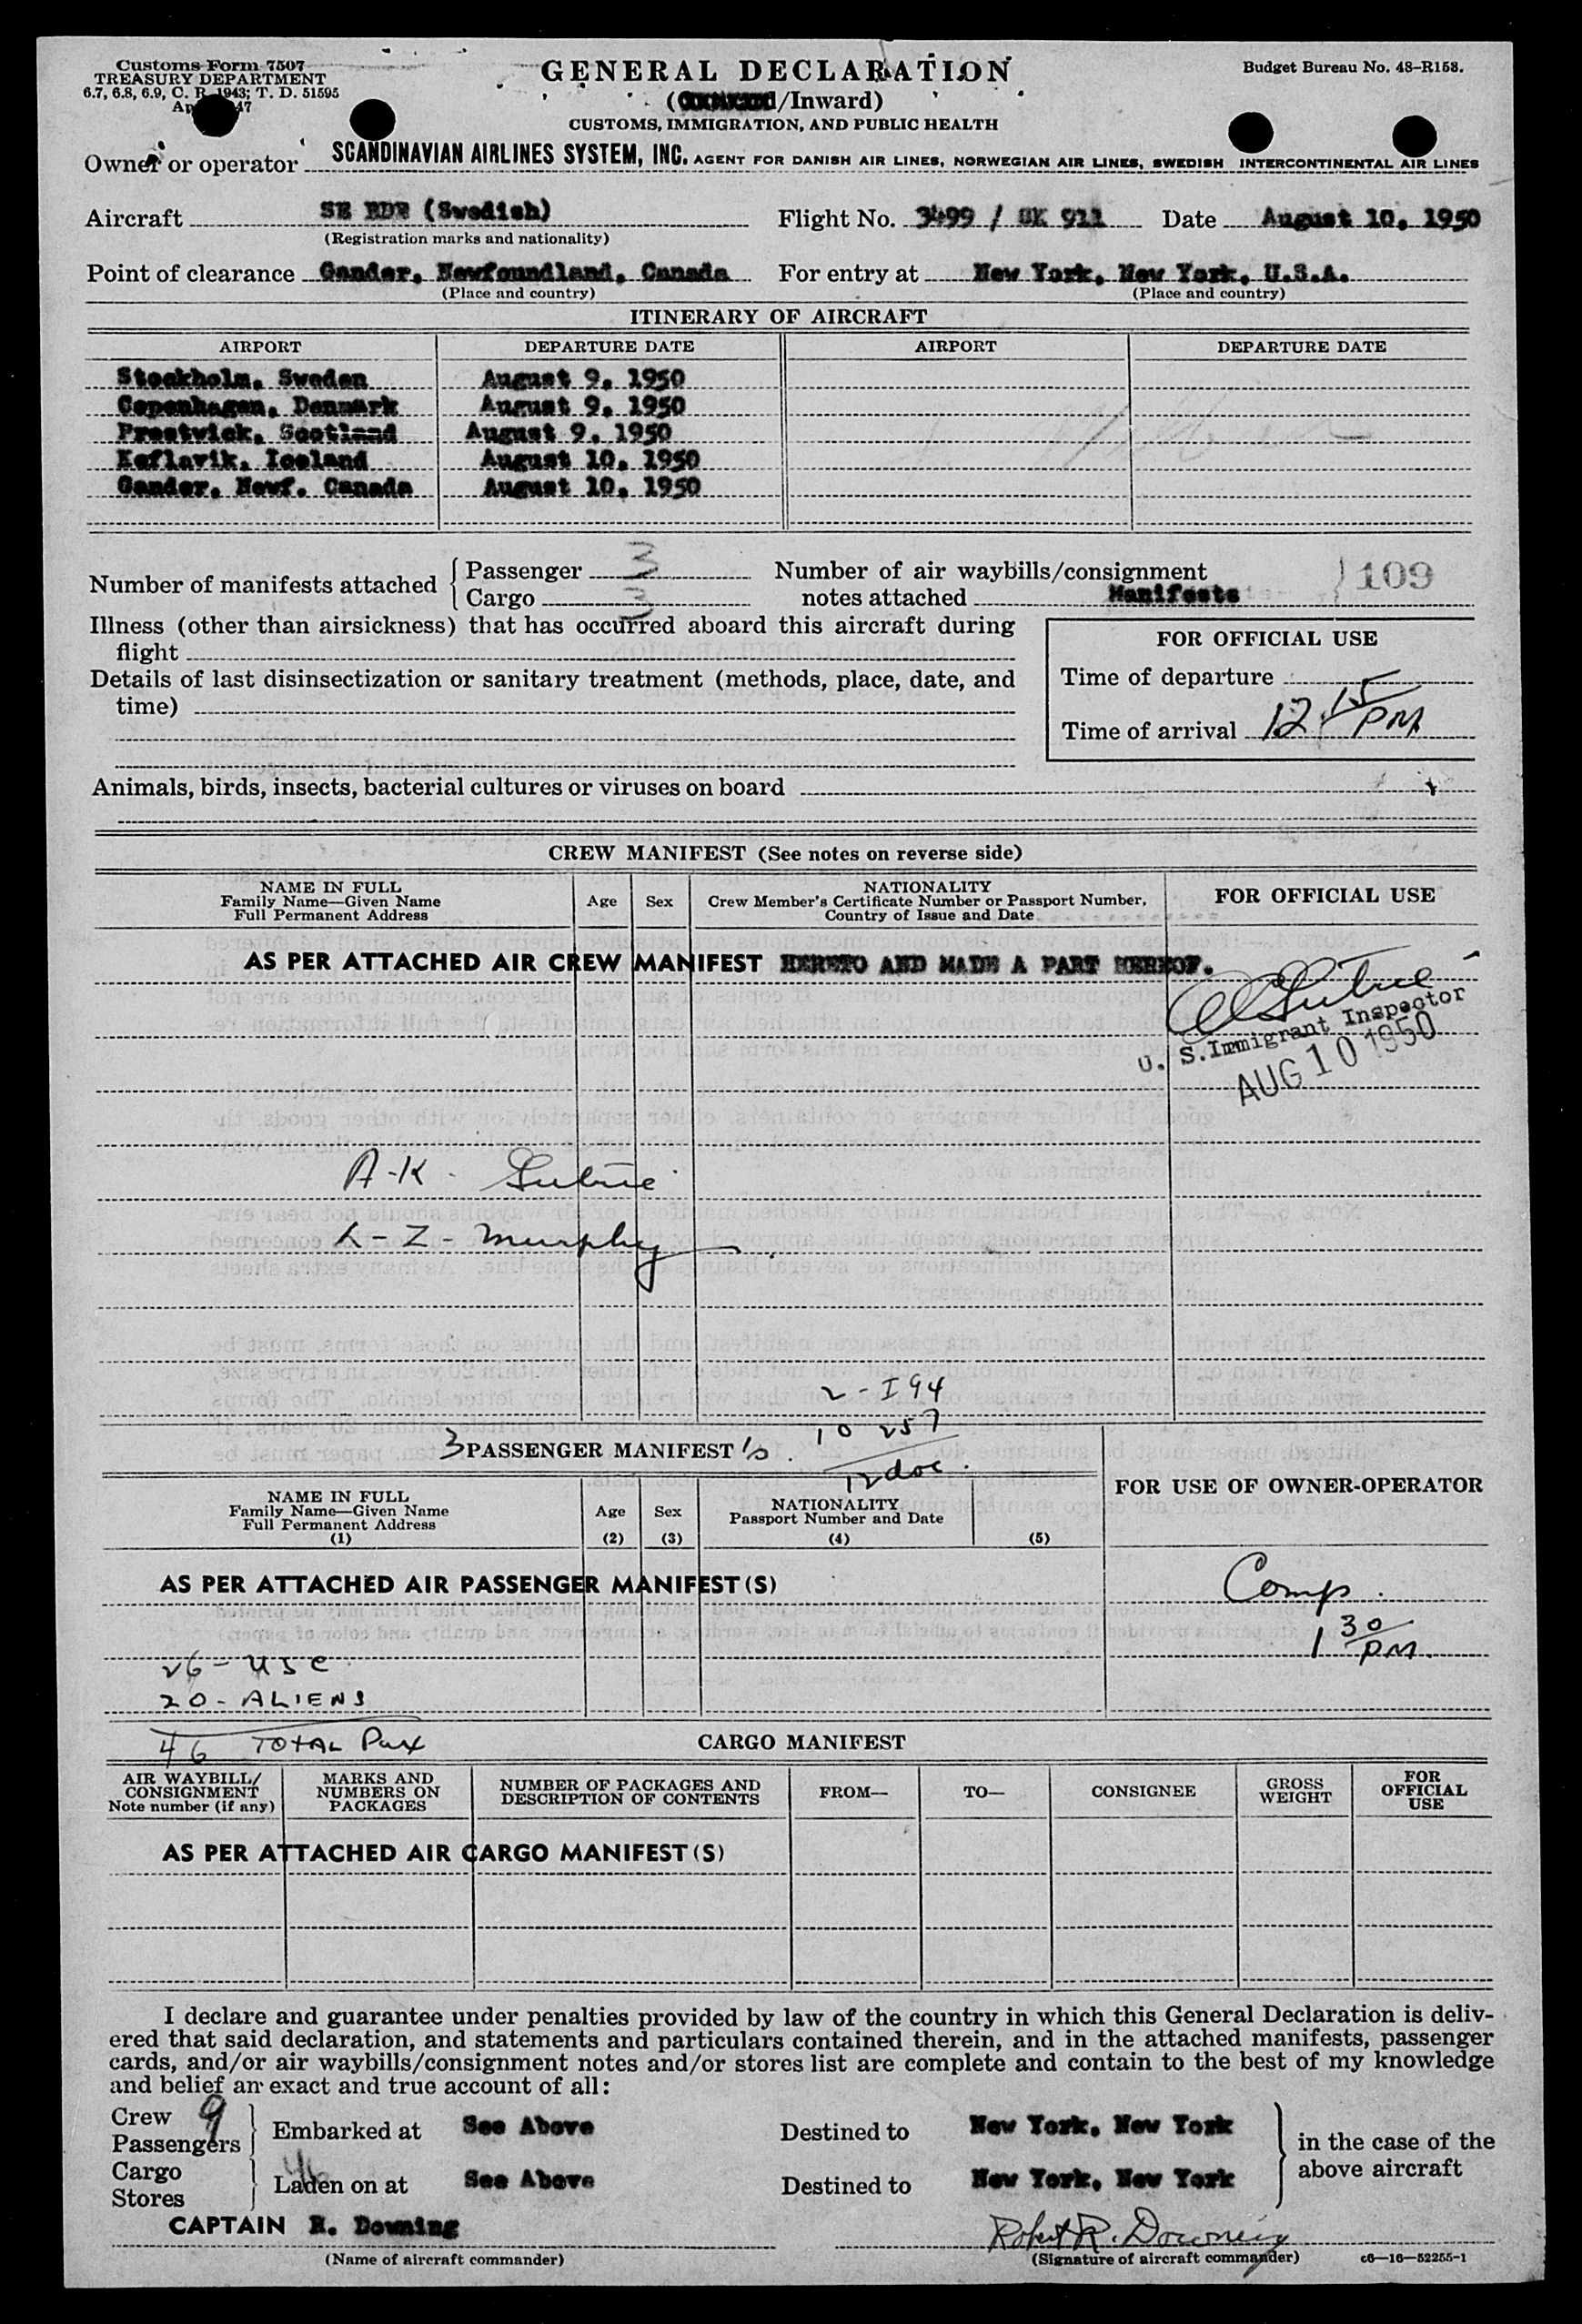 Customs Form 7507
TREASURY DEPARTMENT
6.7, 6.8, 6.9, C. R. 1943; T. D. 51595
GENERAL DECLARATION
Budget Bureau No. 48-R158.
(/Inward)
CUSTOMS, IMMIGRATION, AND PUBLIC HEALTH
Owner or operator SCANDINAVIAN AIRLINES SYSTEM, INC. AGENT FOR DANISH AIR LINES, NORWEGIAN AIR LINES, SWEDISH INTERCONTINENTAL AIR LINES
Aircraft SE (Swedish) Flight No. 3499 / SK 911 Date August 10, 1950
(Registration marks and nationality)
Point of clearance Gander, Newfoundland, Canada For entry at New York, New York, U.S.A.
(Place and country) (Place and country)
ITINERARY OF AIRCRAFT
AIRPORT DEPARTURE DATE AIRPORT DEPARTURE DATE
Stockholm, Sweden August 9, 1950
Copenhagen, Denmark August 9, 1950
Prestwick, Scotland August 9, 1950
Keflavik, Iceland August 10, 1950
Gander, Newf. Canada August 10, 1950
Number of manifests attached { Passenger 3
Cargo 3
Number of air waybills/consignment
notes attached Manifests } 109
Illness (other than airsickness) that has occurred aboard this aircraft during
flight
Details of last disinsectization or sanitary treatment (methods, place, date, and
time)
FOR OFFICIAL USE
Time of departure
Time of arrival 12 15 PM
Animals, birds, insects, bacterial cultures or viruses on board
CREW MANIFEST (See notes on reverse side)
NAME IN FULL
Family Name—Given Name
Full Permanent Address
Age
Sex
NATIONALITY
Crew Member's Certificate Number or Passport Number,
Country of Issue and Date
FOR OFFICIAL USE
AS PER ATTACHED AIR CREW MANIFEST HERETO AND MADE A PART HEREOF.
U. S. Immigrant Inspector
AUG 10 1950
A-K-
L-Z-Murphy
2-I94
10 257
12 doc.
3 PASSENGER MANIFEST 's.
NAME IN FULL
Family Name—Given Name
Full Permanent Address
(1)
Age
(2)
Sex
(3)
NATIONALITY
Passport Number and Date
(4)
(5)
FOR USE OF OWNER-OPERATOR
AS PER ATTACHED AIR PASSENGER MANIFEST(S)
Comp.
1 30 PM.
26-USC
20-ALIENS
46 TOTAL Pax
CARGO MANIFEST
AIR WAYBILL/
CONSIGNMENT
Note number (if any)
MARKS AND
NUMBERS ON
PACKAGES
NUMBER OF PACKAGES AND
DESCRIPTION OF CONTENTS
FROM—
TO—
CONSIGNEE
GROSS
WEIGHT
FOR
OFFICIAL
USE
AS PER ATTACHED AIR CARGO MANIFEST(S)
I declare and guarantee under penalties provided by law of the country in which this General Declaration is deliv-
ered that said declaration, and statements and particulars contained therein, and in the attached manifests, passenger
cards, and/or air waybills/consignment notes and/or stores list are complete and contain to the best of my knowledge
and belief an exact and true account of all:
Crew 9
Passengers } Embarked at See Above Destined to New York, New York
Cargo
Stores } Laden on at See Above Destined to New York, New York
} in the case of the
above aircraft
CAPTAIN R. Downing Robert R. Downing
(Name of aircraft commander) (Signature of aircraft commander) c6—16—52255-1